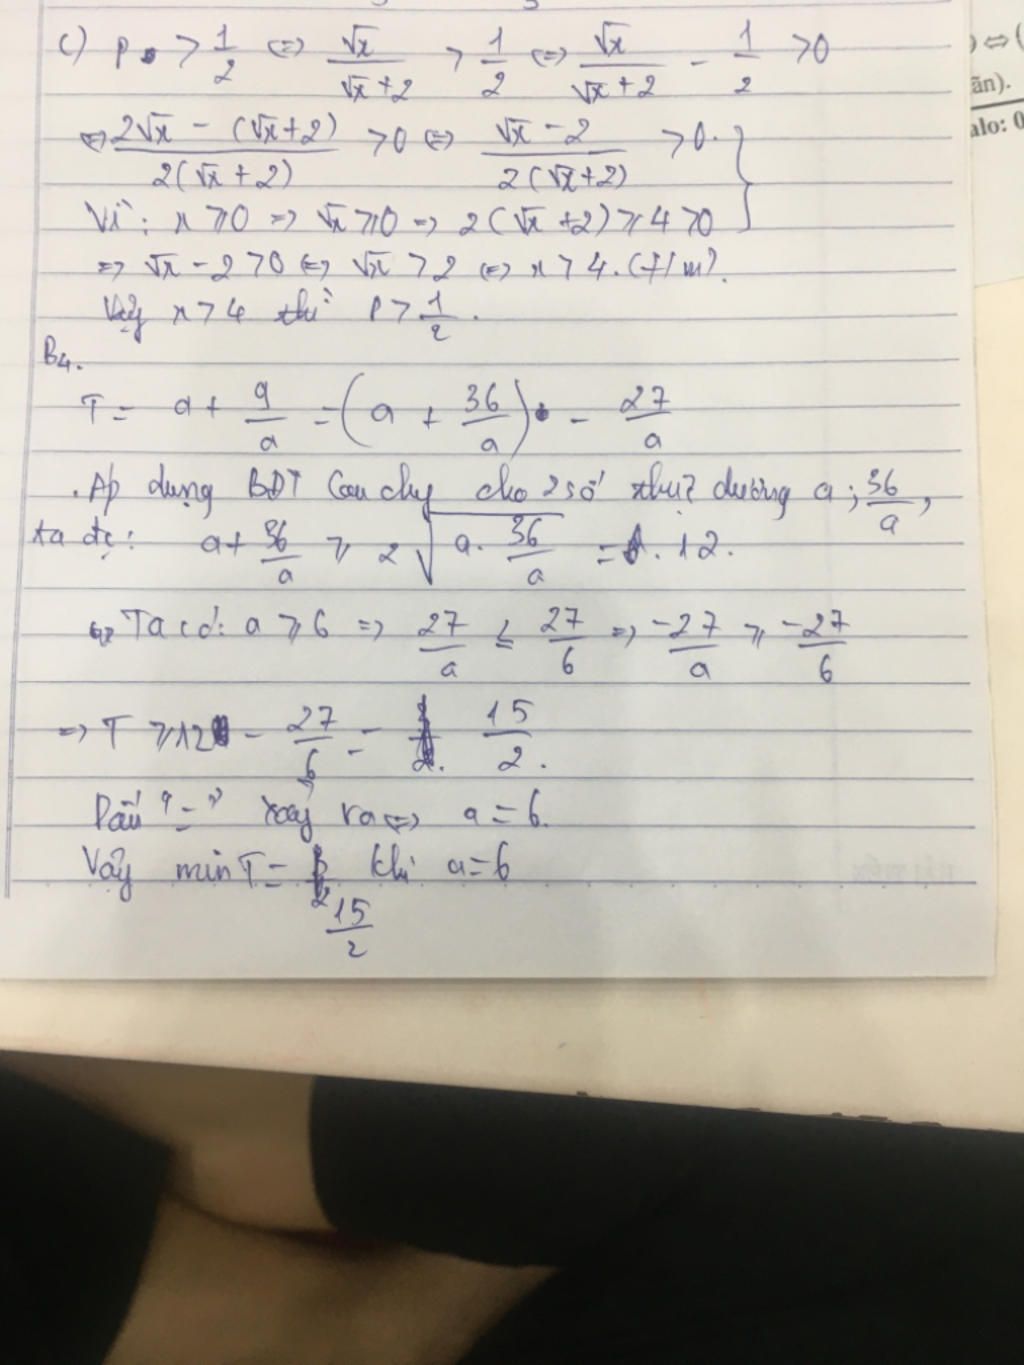 c) P > 1/2 ⇔ √x/(√x+2) > 1/2 ⇔ √x/(√x+2) - 1/2 > 0
⇔ (2√x - (√x+2))/(2(√x+2)) > 0 ⇔ (√x-2)/(2(√x+2)) > 0. }
Vì: x ⩾ 0 ⇒ √x ⩾ 0 ⇒ 2(√x+2) ⩾ 4 > 0
⇒ √x - 2 > 0 ⇔ √x > 2 ⇔ x > 4. (t/m).
Vậy x > 4 thì P > 1/2.
B4.
T = a + 9/a = (a + 36/a) - 27/a
. Áp dụng BĐT Cauchy cho 2 số thực dương a; 36/a,
ta đc: a + 36/a ⩾ 2√(a. 36/a) = 12.
Ta có: a ⩾ 6 ⇒ 27/a ≤ 27/6 ⇒ -27/a ⩾ -27/6
⇒ T ⩾ 12 - 27/6 = 15/2.
Dấu "=" xảy ra ⇔ a = 6.
Vậy min T = 15/2 khi a = 6
) ⇔ (
ãn).
alo: 0